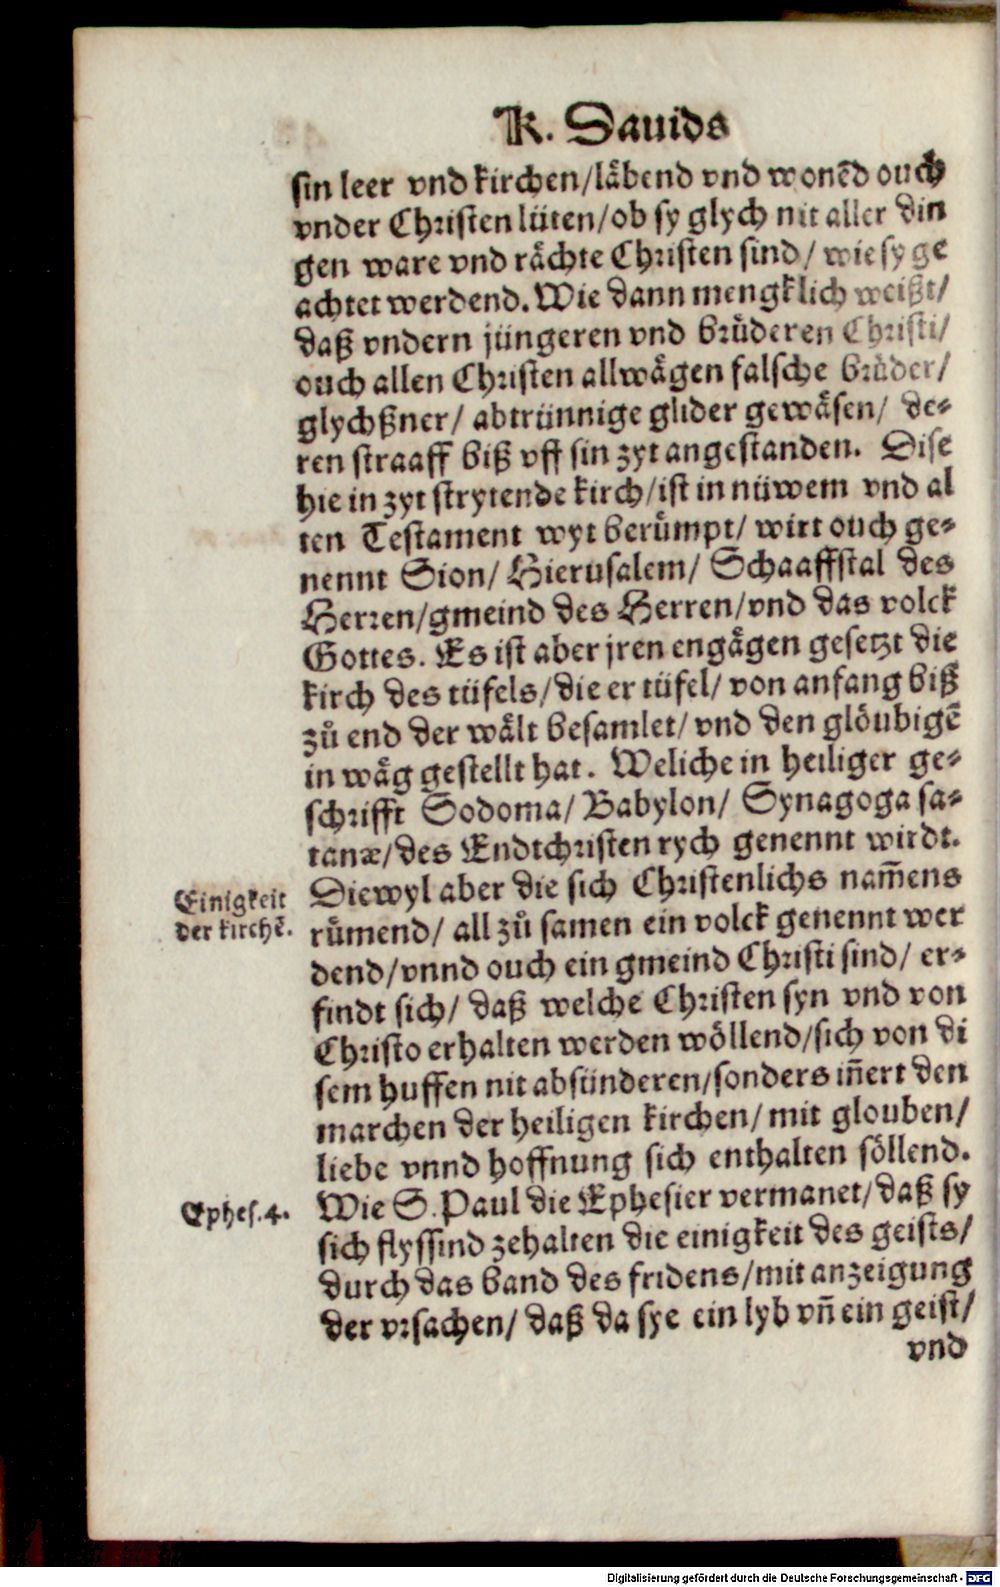 K. Dauids
sin leer vnd kirchen/läbend vnd wonẽd ouch
vnder Christen lüten/ob sy glych nit aller din
gen ware vnd rächte Christen sind/ wie sy ge
achtet werdend. Wie dann mengklich weißt/
daß vndern jüngeren vnd brůderen Christi/
ouch allen Christen allwägen falsche brůder/
glychßner/ abtrünnige glider gewäsen/ de⸗
ren straaff biß vff sin zyt angestanden. Dise
hie in zyt strytende kirch/ist in nüwem vnd al
ten Testament wyt berůmpt/ wirt ouch ge⸗
nennt Sion/ Hierusalem/ Schaaffstal des
Herren/gmeind des Herren/vnd das volck
Gottes. Es ist aber jren engägen gesetzt die
kirch des tüfels/die er tüfel/ von anfang biß
zů end der wält besamlet/ vnd den glöubigẽ
in wäg gestellt hat. Weliche in heiliger ge⸗
schrifft Sodoma/ Babylon/ Synagoga sa⸗
tanæ/des Endtchristen rych genennt wirdt.
Einigkeit
der kirchẽ.
Diewyl aber die sich Christenlichs nam̃ens
růmend/ all zů samen ein volck genennt wer
dend/vnnd ouch ein gmeind Christi sind/ er⸗
findt sich/ daß welche Christen syn vnd von
Christo erhalten werden wöllend/sich von di
sem huffen nit absünderen/sonders iñert den
marchen der heiligen kirchen/ mit glouben/
liebe vnnd hoffnung sich enthalten söllend.
Ephes.4.
Wie S. Paul die Ephesier vermanet/daß sy
sich flyssind zehalten die einigkeit des geists/
durch das band des fridens/mit anzeigung
der vrsachen/ daß da sye ein lyb vñ ein geist/
vnd
Digitalisierung gefördert durch die Deutsche Forschungsgemeinschaft - DFG